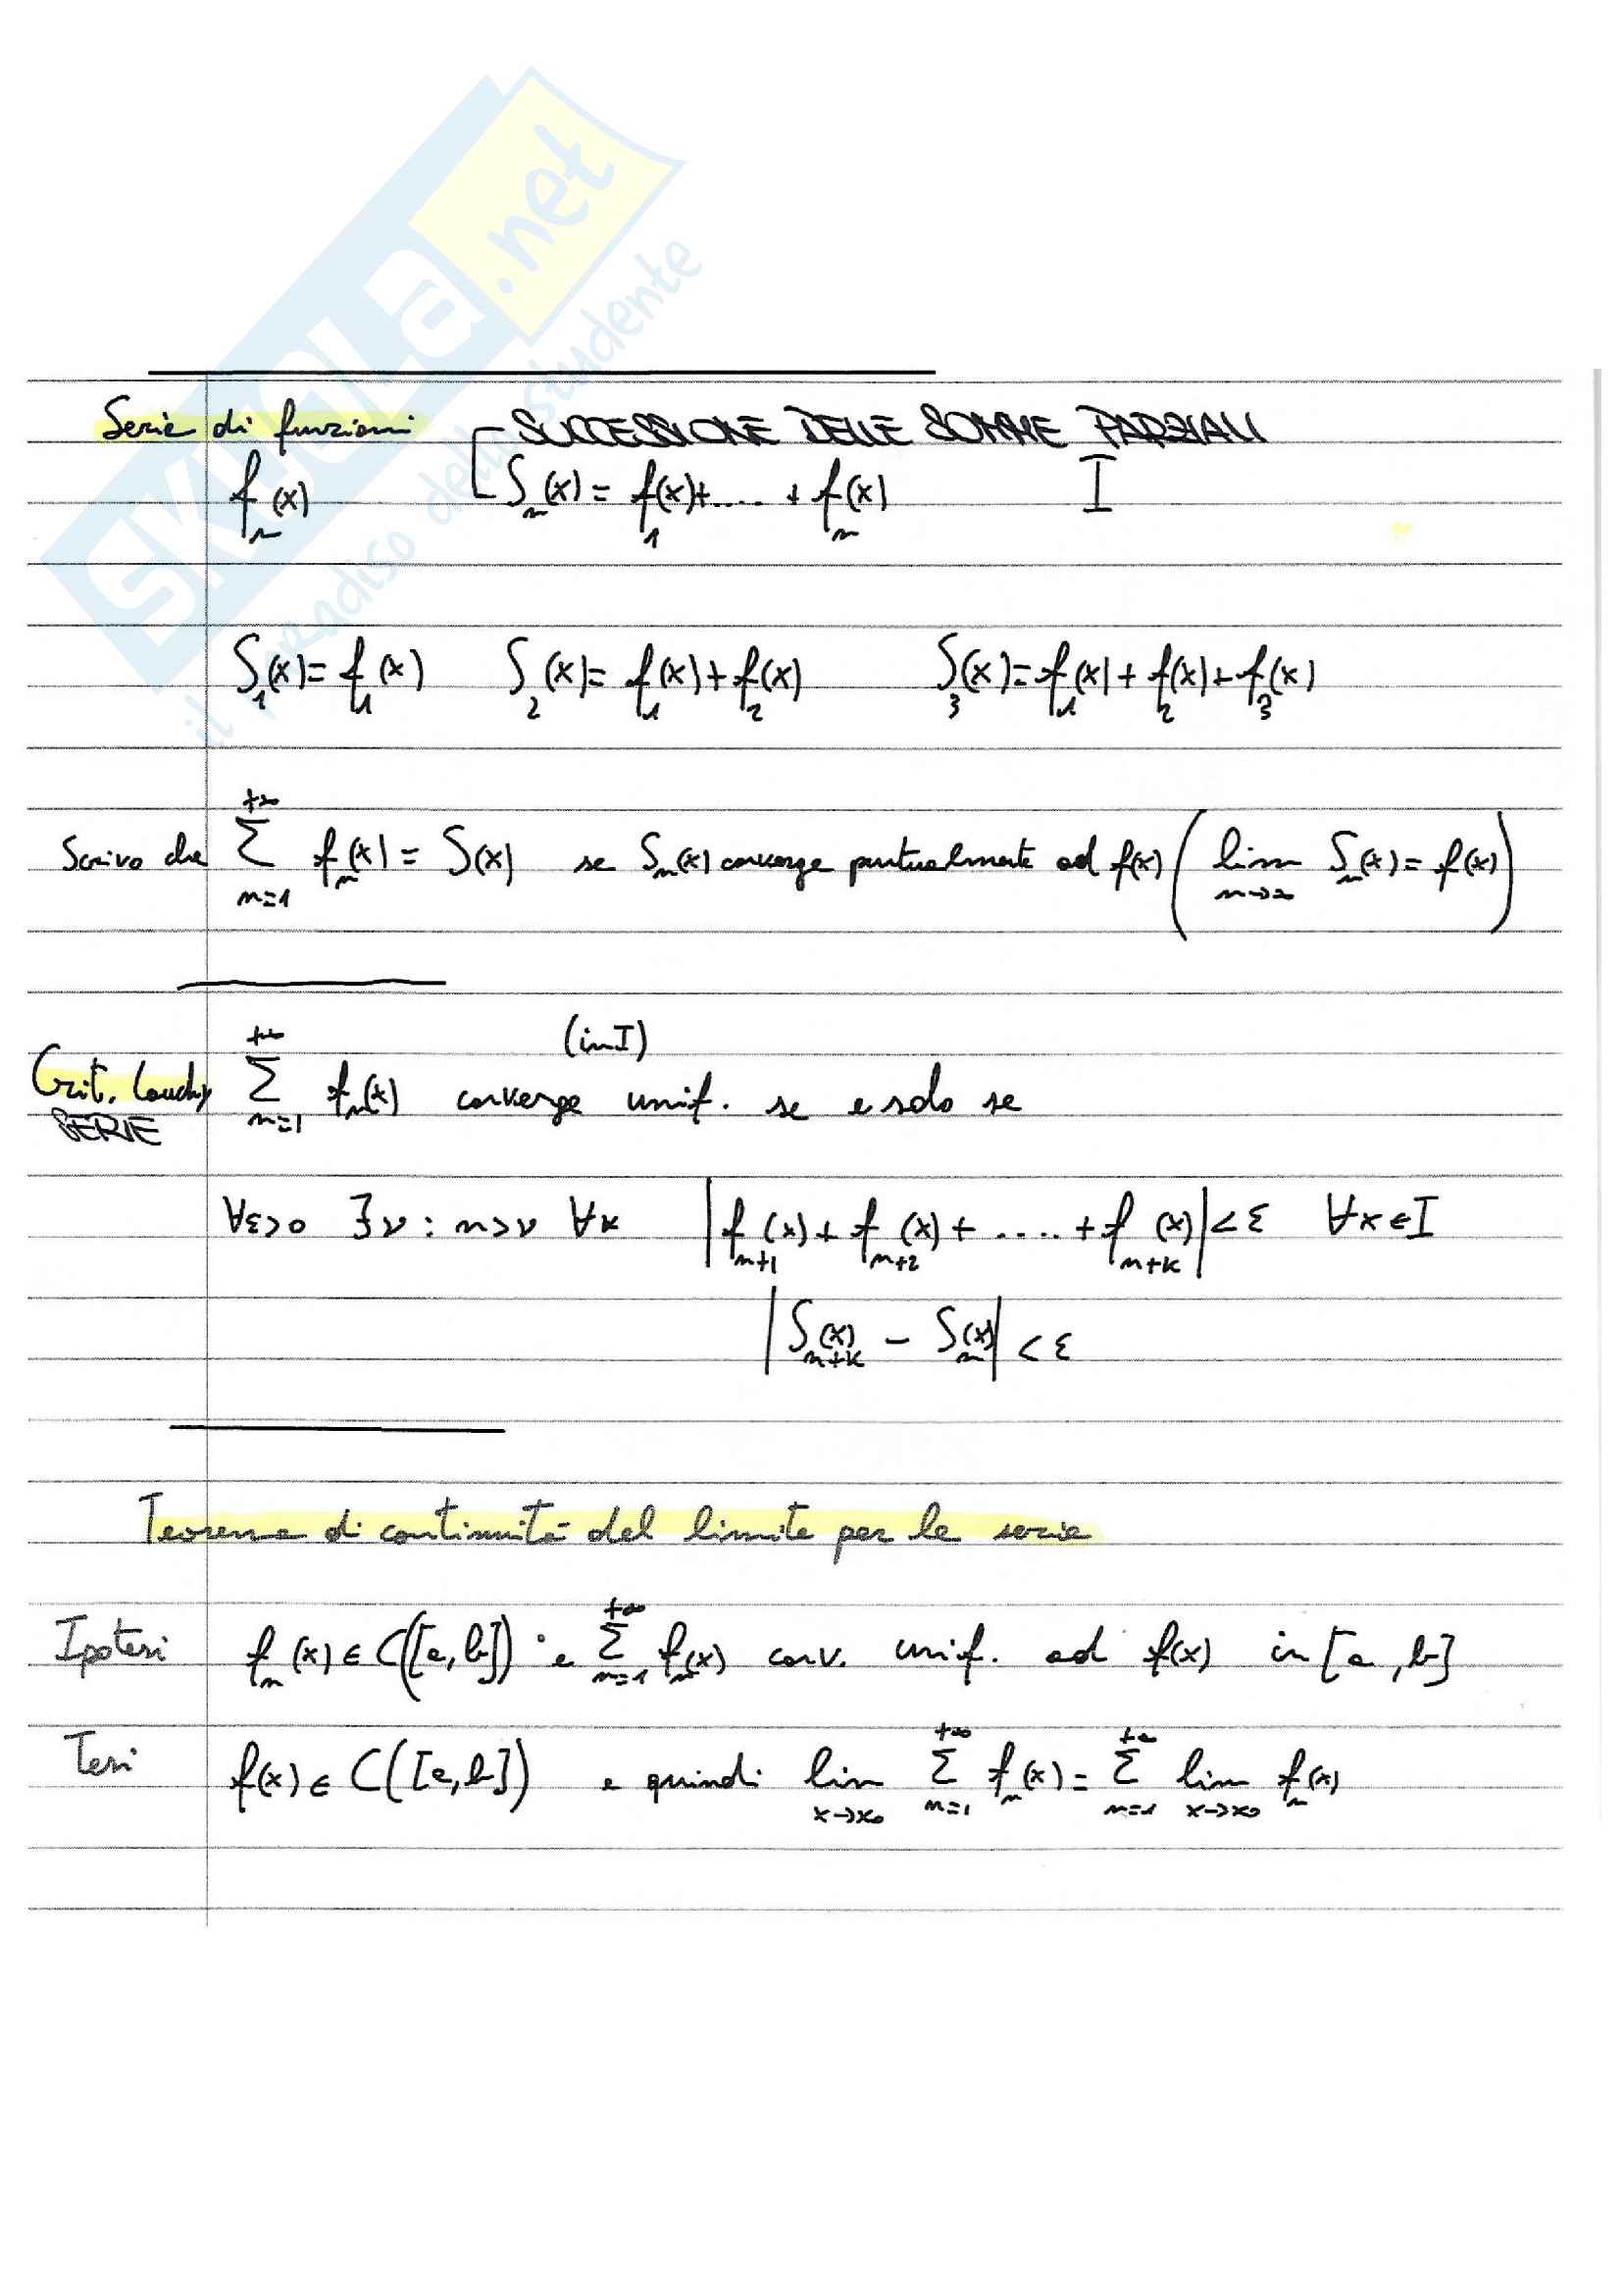 SKUOLA.net
il paradiso dello studente
Serie di funzioni SUCCESSIONE DELLE SOMME PARZIALI
fₙ(x) Sₙ(x) = f₁(x)+.... + fₙ(x) I
S₁(x) = f₁(x) S₂(x) = f₁(x) + f₂(x) S₃(x) = f₁(x) + f₂(x) + f₃(x)
Scrivo che ∑_{n=1}^{+∞} fₙ(x) = S(x) se Sₙ(x) converge puntualmente ad f(x) ( lim_{n→∞} Sₙ(x) = f(x) )
(in I)
Crit. Cauchy ∑_{n=1}^{+∞} fₙ(x) converge unif. se e solo se
SERIE
∀ε>0 ∃ν : n>ν ∀k |fₙ₊₁(x) + fₙ₊₂(x) + .... + fₙ₊ₖ(x)| < ε ∀x ∈ I
|Sₙ₊ₖ(x) − Sₙ(x)| < ε
Teorema di continuità del limite per le serie
Ipotesi fₙ(x) ∈ C([a,b]) e ∑_{n=1}^{+∞} fₙ(x) conv. unif. ad f(x) in [a,b]
Tesi f(x) ∈ C([a,b]) e quindi lim_{x→x₀} ∑_{n=1}^{+∞} fₙ(x) = ∑_{n=1}^{+∞} lim_{x→x₀} fₙ(x)